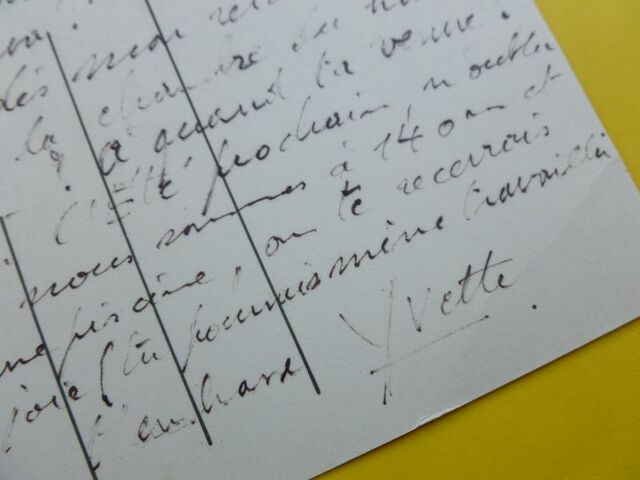 dès mon re
la chambre du
? à quand ta venue ?
l'été prochain, n'oublie
nous sommes à 140 m et
piscine, on te recevrais
joie (tu pourrais même travailler
t'embrasse Yvette.